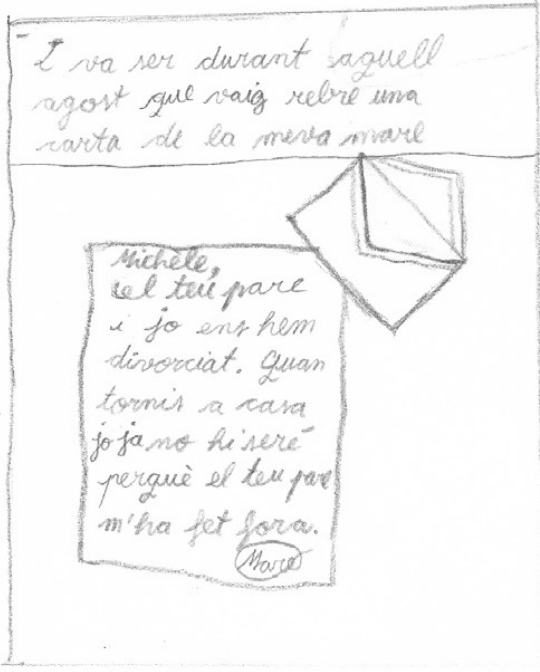 I va ser durant aquell
agost que vaig rebre una
carta de la meva mare
Michèle,
el teu pare
i jo ens hem
divorciat. Quan
tornis a casa
jo ja no hi seré
perquè el teu pare
m'ha fet fora.
Mare